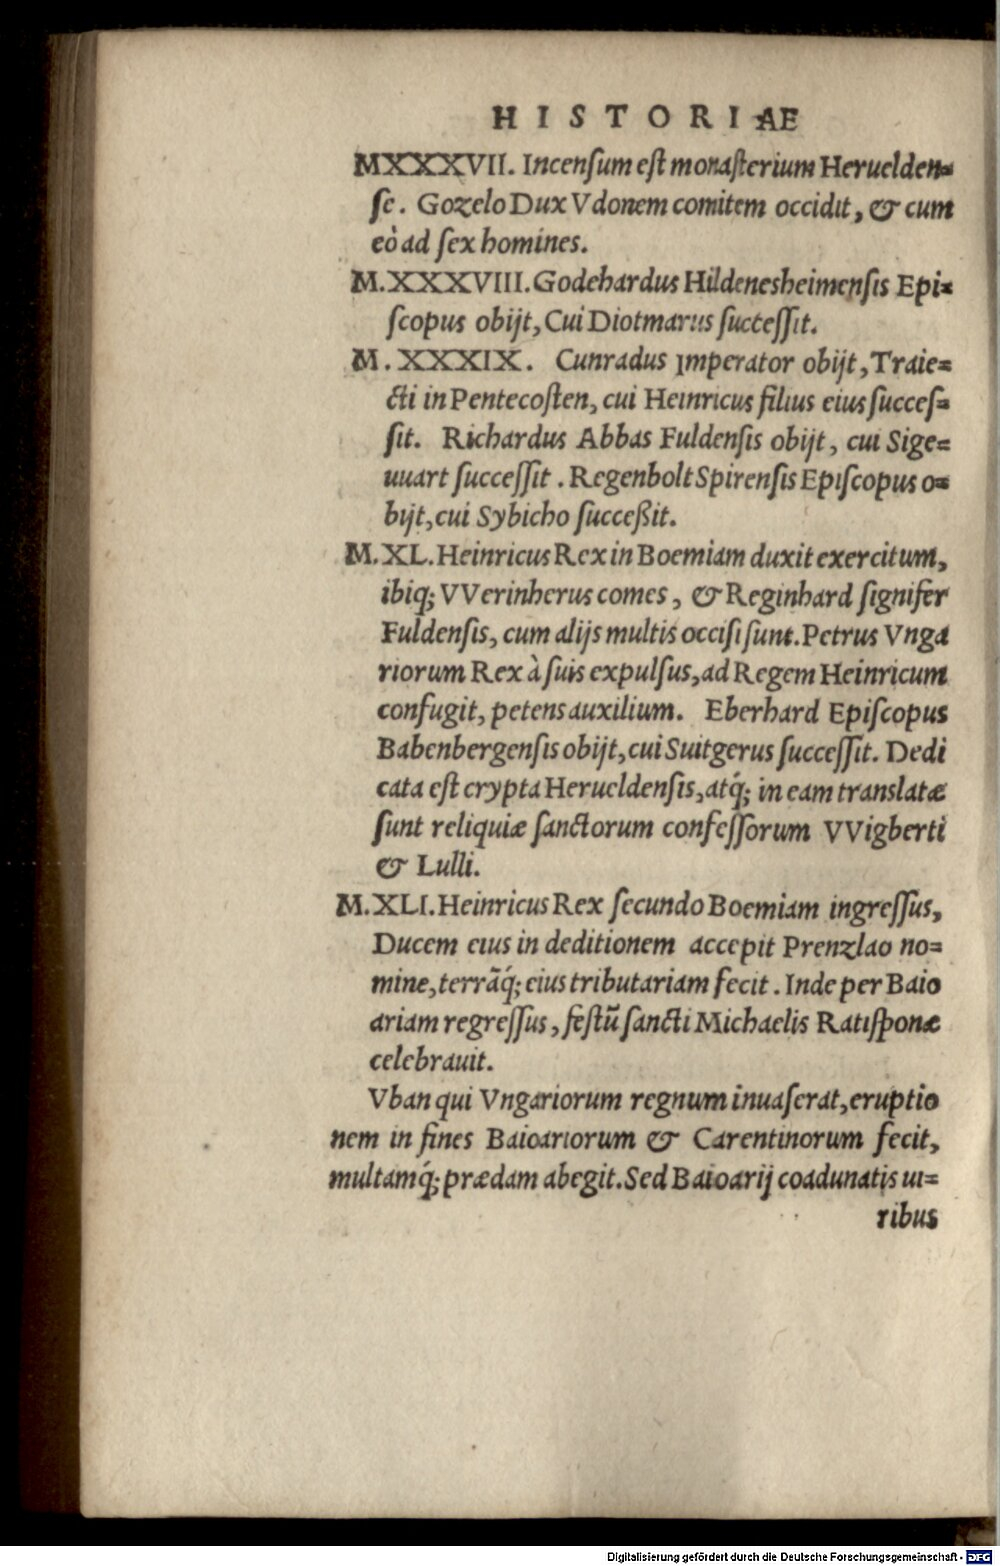 HISTORIAE
MXXXVII. Incenſum eſt monaſterium Heruelden=
ſe. Gozelo Dux Vdonem comitem occidit, & cum
eò ad ſex homines.
M.XXXVIII. Godehardus Hildenesheimenſis Epi=
ſcopus obijt, Cui Diotmarus ſucceſſit.
M. XXXIX. Cunradus Imperator obijt, Traie=
cti in Pentecoſten, cui Heinricus filius eius ſucceſ=
ſit. Richardus Abbas Fuldenſis obijt, cui Sige=
uuart ſucceſſit. Regenbolt Spirenſis Epiſcopus o=
bijt, cui Sybicho ſucceßit.
M.XL. Heinricus Rex in Boemiam duxit exercitum,
ibiq; VVerinherus comes, & Reginhard ſignifer
Fuldenſis, cum alijs multis occiſi ſunt. Petrus Vnga
riorum Rex à ſuis expulſus, ad Regem Heinricum
confugit, petens auxilium. Eberhard Epiſcopus
Babenbergenſis obijt, cui Suitgerus ſucceſſit. Dedi
cata eſt crypta Herueldenſis, atq́; in eam translatæ
ſunt reliquiæ ſanctorum confeſſorum VVigberti
& Lulli.
M.XLI. Heinricus Rex ſecundo Boemiam ingreſſus,
Ducem eius in deditionem accepit Prenzlao no=
mine, terrãq́; eius tributariam fecit. Inde per Baio
ariam regreſſus, feſtũ ſancti Michaelis Ratiſponæ
celebrauit.
Vban qui Vngariorum regnum inuaſerat, eruptio
nem in fines Baioariorum & Carentinorum fecit,
multamq́; prædam abegit. Sed Baioarij coadunatis ui=
ribus
Digitalisierung gefördert durch die Deutsche Forschungsgemeinschaft - DFG